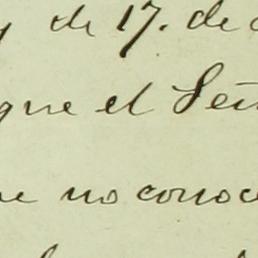 y de 17. de
que el Señ
ue no conoce